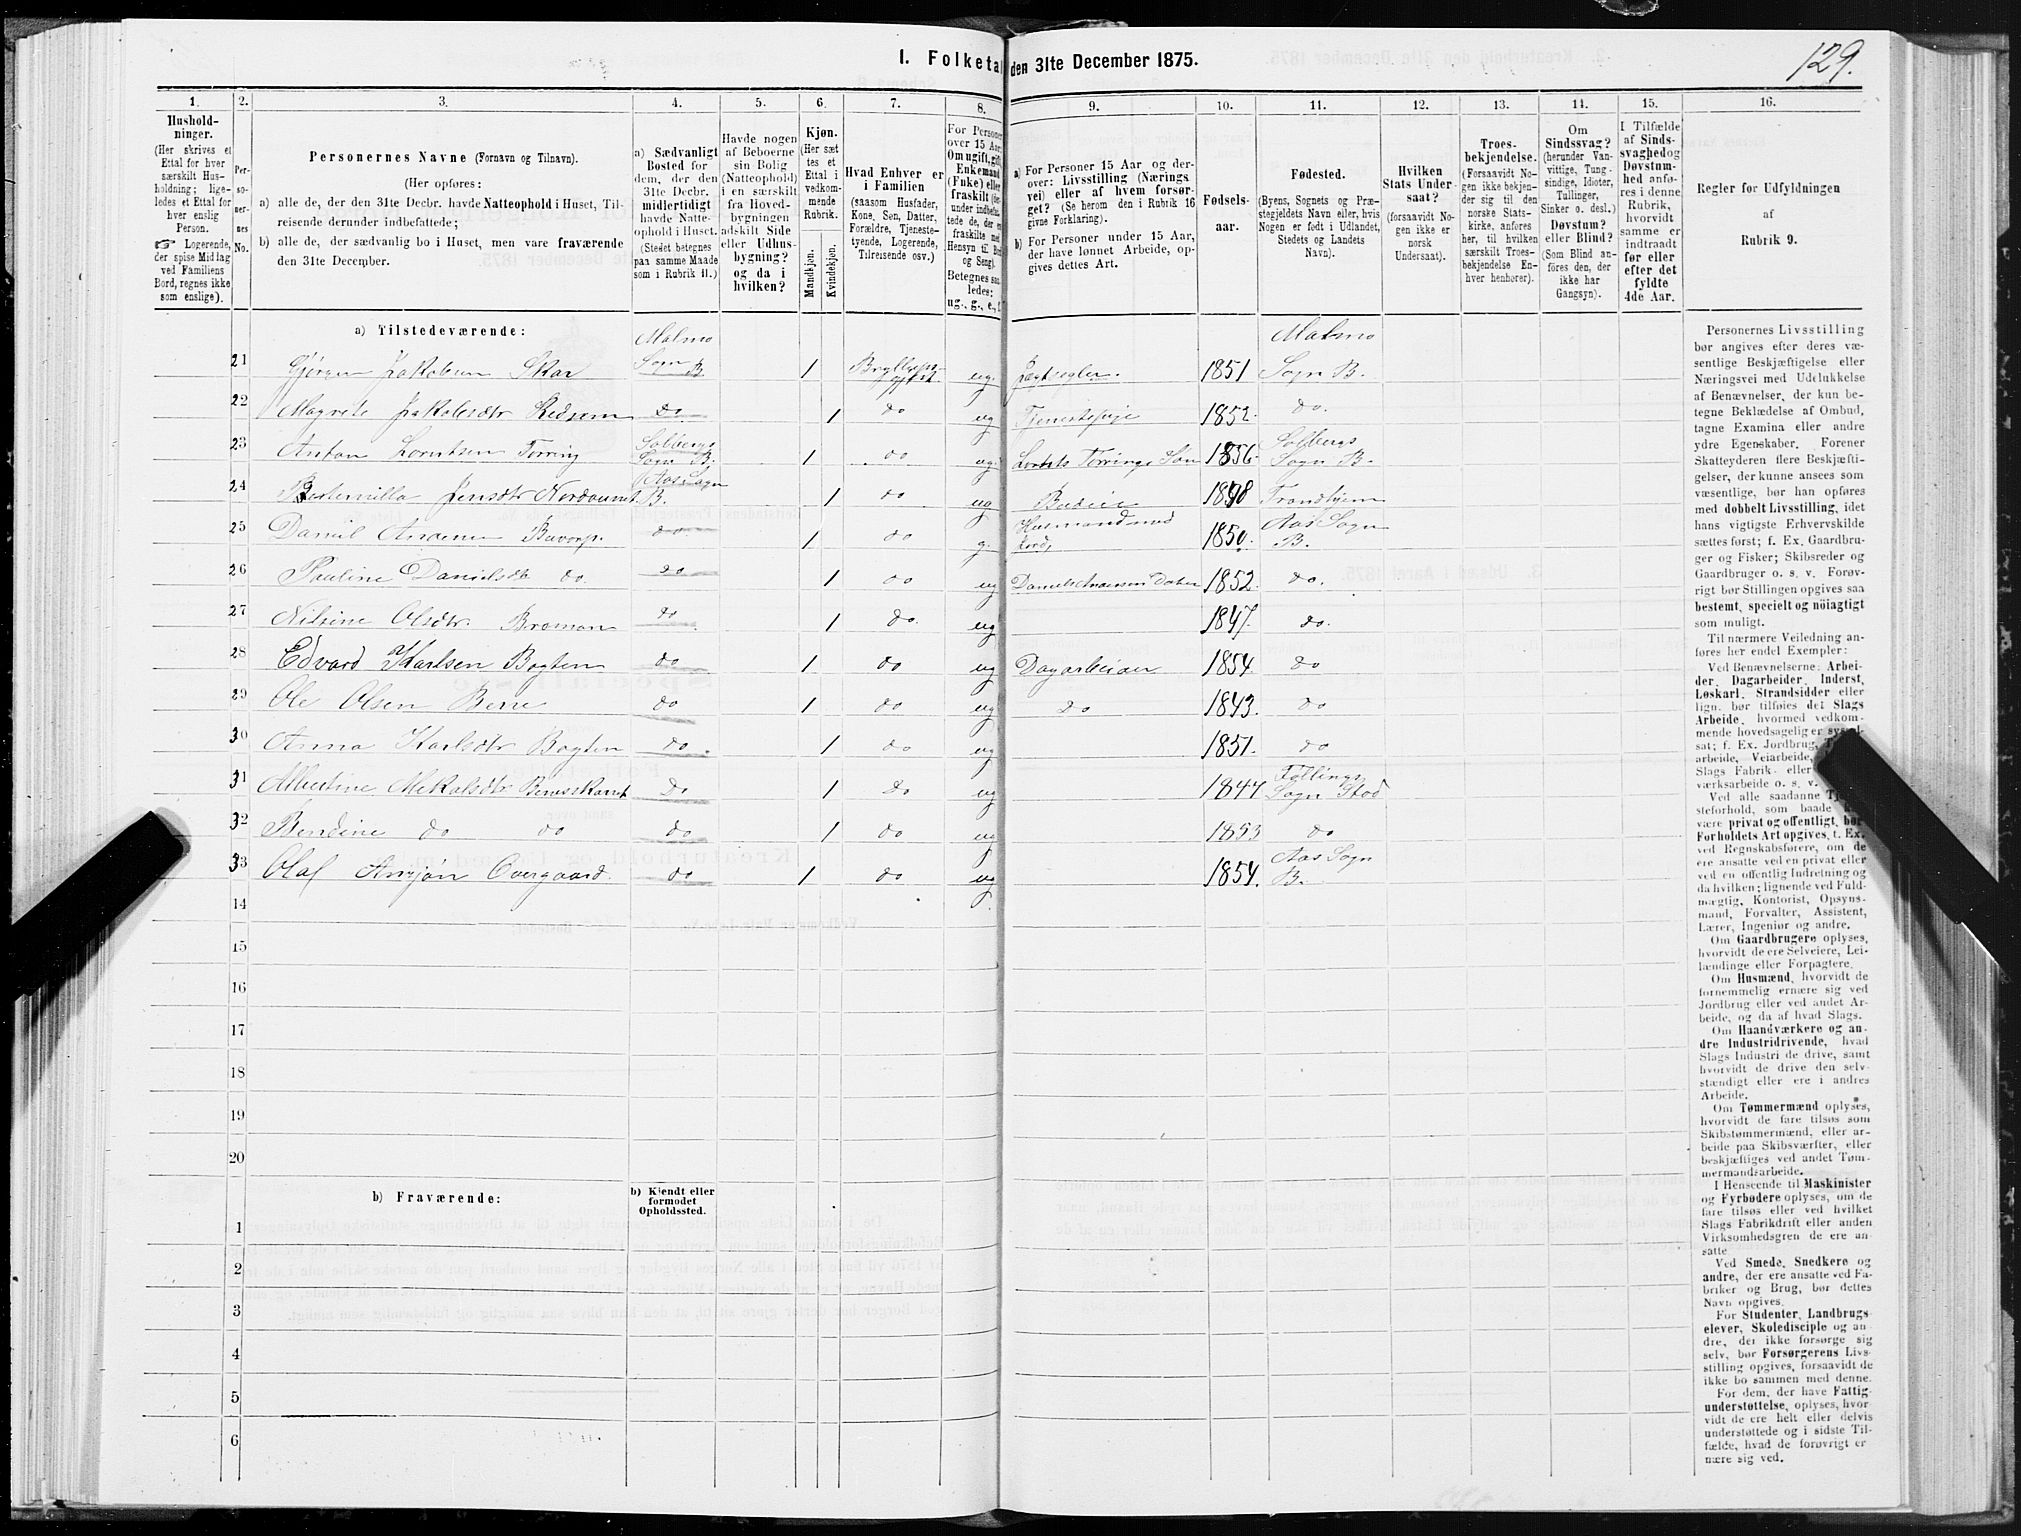 129.
I. Folketal den 31te December 1875.
1. 2. 3. 4. 5. 6. 7. 8. 9. 10. 11. 12. 13. 14. 15. 16.
Hushold-
ninger.
(Her skrives et
Ettal for hver
særskilt Hus-
holdning; lige-
ledes et Ettal for
hver enslig
Person.
☞ Logerende,
der spise Middag
ved Familiens
Bord, regnes ikke
som enslige).
Per-
so-
ner-
nes
No.
Personernes Navne (Fornavn og Tilnavn).
(Her opføres:
a) alle de, der den 31te Decbr. havde Natteophold i Huset, Til-
reisende derunder indbefattede;
b) alle de, der sædvanlig bo i Huset, men vare fraværende
den 31te December.
a) Sædvanligt
Bosted for
dem, der den
31te Decbr.
midlertidigt
havde Natte-
ophold i Huset.
(Stedet betegnes
paa samme Maade
som i Rubrik 11.)
Havde nogen
af Beboerne
sin Bolig
(Natteophold)
i en særskilt
fra Hoved-
bygningen
adskilt Side
eller Udhus-
bygning?
og da i
hvilken?
Kjøn.
(Her sæt
tes et
Ettal i
vedkom-
mende
Rubrik.
Mandkjøn.
Kvindekjøn.
Hvad Enhver er
i Familien
(saasom Husfader,
Kone, Søn, Datter,
Forældre, Tjeneste-
tyende, Logerende,
Tilreisende osv.)
For Personer
over 15 Aar:
Om ugift, gift,
Enkemand
(Enke) eller
fraskilt
Hensyn til Bord
og Seng).
Betegnes saa-
ledes:
ug., g., e., f.
a) For Personer 15 Aar og der-
over: Livsstilling (Nærings-
vei) eller af hvem forsør-
get? (Se herom den i Rubrik 16
givne Forklaring).
b) For Personer under 15 Aar,
der have lønnet Arbeide, op-
gives dettes Art.
Fødsels-
aar.
Fødested.
(Byens, Sognets og Præ-
stegjeldets Navn eller, hvis
Nogen er født i Udlandet,
Stedets og Landets
Navn).
Hvilken
Stats Under-
saat?
(forsaavidt No-
gen ikke er
norsk
Undersaat).
Troes-
bekjendelse.
(Forsaavidt No-
gen ikke bekjen-
der sig til den
norske Stats-
kirke, anføres
her, til hvilken
særskilt Troes-
bekjendelse En-
hver henhører).
Om
Sindssvag?
(herunder Van-
vittige, Tung-
sindige, Idioter,
Tullinger,
Sinker o. desl.)
Døvstum?
eller Blind?
(Som Blind an-
føres den, der
ikke har
Gangsyn).
I Tilfælde
af Sinds-
svaghed og
Døvstum-
hed anfø-
res i denne
Rubrik,
hvorvidt
samme er
indtraadt
før eller
efter det
fyldte
4de Aar.
Regler for Udfyldningen
af
Rubrik 9.
a) Tilstedeværende:
21 Gjørgen Jakobsen Skar Malmo Sogn B 1 Bryllups-gjest ug. Jægtsegler. 1851 Malmo Sogn B.
22 Magrete Jakobsdtr do 1 do ug Tjenestepige 1852. do.
23 Anton Lorntsen Tørring Solbergs Sogn B. 1 do ug. Tørrings Søn 1856 Solbergs Sogn B.
24 Jensdtr Aas Sogn B. 1 do ug Trondhjem
25 Daniel do 1 do g. Husmand med Jord, 1850. Aas Sogn B.
26 Pauline Danielsdtr do. do 1 do ug Daniel Datter 1852 do.
27 Nilsine Olsdtr. Broman do 1 do. ug 1847. do.
28 Edvard Karlsen Bogten do 1 do ug Dagarbeider 1854. do
29 Ole Olsen do 1 do ug do 1843. do
30 Anna Karlsdtr Bogten do. 1 do ug 1851. do
31 Albertine Mekalsdtr do 1 do ug 1844 Føllings Sogn Stod
32 Bendine do do do 1 do ug 1853 do
33 Olaf Overgaard. do 1 do ug 1854. Aas Sogn B.
14
15
16
17
18
19
20
b) Fraværende:
b) Kjendt eller
formodet
Opholdssted.
1
2
3
4
5
6
Personernes Livsstilling
bør angives efter deres væ-
sentlige Beskjæftigelse eller
Næringsvei med Udelukkelse
af Benævnelser, der kun be-
tegne Beklædelse af Ombud,
tagne Examina eller andre
ydre Egenskaber. Forener
Skatteyderen flere Beskjæfti-
gelser, der kunne ansees som
væsentlige, bør han opføres
med dobbelt Livsstilling, idet
hans vigtigste Erhvervskilde
sættes først; f. Ex. Gaardbru-
ger og Fisker; Skibsreder og
Gaardbruger o. s. v. Forøv-
rigt bør Stillingen opgives saa
bestemt, specielt og nöiagtigt
som muligt.
Til nærmere Veiledning an-
føres her endel Exempler:
Ved Benævnelserne: Arbei-
der, Dagarbeider, Inderst,
Løskarl, Strandsidder eller
lign. bør tilføies det Slags
Arbeide, hvormed vedkom-
mende hovedsagelig er syssel-
sat; f. Ex. Jordbrug,
arbeide, Veiarbeide,
Slags Fabrik- eller
værksarbeide o. s. v.
Ved alle saadanne
steforhold, som baade
være privat og offentligt, bør
Forholdets Art opgives, t. Ex.
ved Regnskabsførere, om de
ere ansatte ved en privat eller
ved en offentlig Indretning og
da hvilken; lignende ved Fuld-
mægtig, Kontorist, Opsyns-
mand, Forvalter, Assistent,
Lærer, Ingeniør og andre.
Om Gaardbrugere oplyses,
hvorvidt de ere Selveiere, Lei-
lændinge eller Forpagtere.
Om Husmænd, hvorvidt de
fornemmelig ernære sig ved
Jordbrug eller ved andet Ar-
beide, og da af hvad Slags.
Om Haandværkere og an-
dre Industridrivende, hvad
Slags Industri de drive, samt
hvorvidt de drive den selv-
stændigt eller ere i andres
Arbeide.
Om Tømmermænd oplyses,
hvorvidt de fare tilsøs som
Skibstømmermænd, eller ar-
beide paa Skibsværfter, eller
beskjæftiges ved andet Tøm-
mermandsarbeide.
I Henseende til Maskinister
og Fyrbødere oplyses, om de
fare tilsøs eller ved hvilket
Slags Fabrikdrift eller anden
Virksomhedsgren de ere an-
satte
Ved Smede, Snedkere og
andre, der ere ansatte ved Fa-
briker og Brug, bør dettes
Navn opgives.
For Studenter, Landbrugs-
elever, Skoledisciple og an-
dre, der ikke forsørge sig
selv, bør Forsørgerens Livs-
stilling opgives, forsaavidt de
ikke bo sammen med denne.
For dem, der have Fattig-
understøttelse, oplyses, hvor-
vidt de ere helt eller delvis
understøttede og i sidste Til-
fælde, hvad de forøvrigt er
nære sig ved.